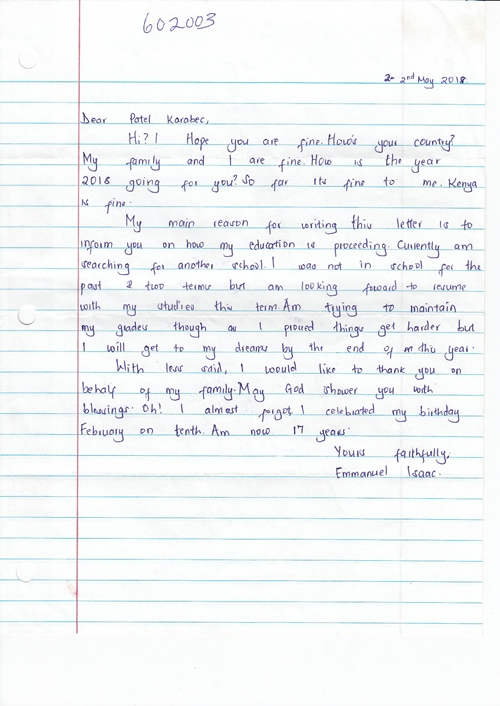 602003
2- 2nd May 2018.
Dear Patel Karabec,
Hi? I Hope you are fine. How's your country?
My family and I are fine. How is the year
2018 going for you? So far its fine to me. Kenya
is fine.
My main reason for writing this letter is to
inform you on how my education is proceeding. Currently am
searching for another school. I was not in school for the
past 2 two terms but am looking foward to resume
with my studies this term. Am trying to maintain
my grades though as I proceed things get harder but
I will get to my dreams by the end of this year.
With less said, I would like to thank you on
behalf of my family. May God shower you with
blessings. Oh! I almost forgot I celebrated my birthday
February on tenth. Am now 17 years.
Yours faithfully,
Emmanuel Isaac.